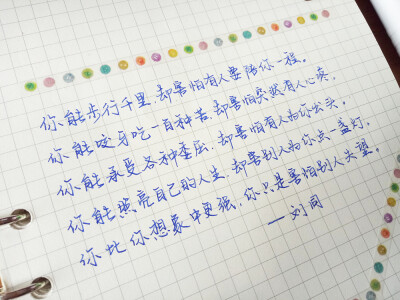 你能步行千里，却害怕有人要陪你一程。
你能咬牙吃一百种苦，却害怕突然有人心疼。
你能承受各种委屈，却害怕有人为你出头。
你能照亮自己的人生，却害怕别人为你点一盏灯。
你比你想象中更强，你只是害怕别人失望。
——刘同